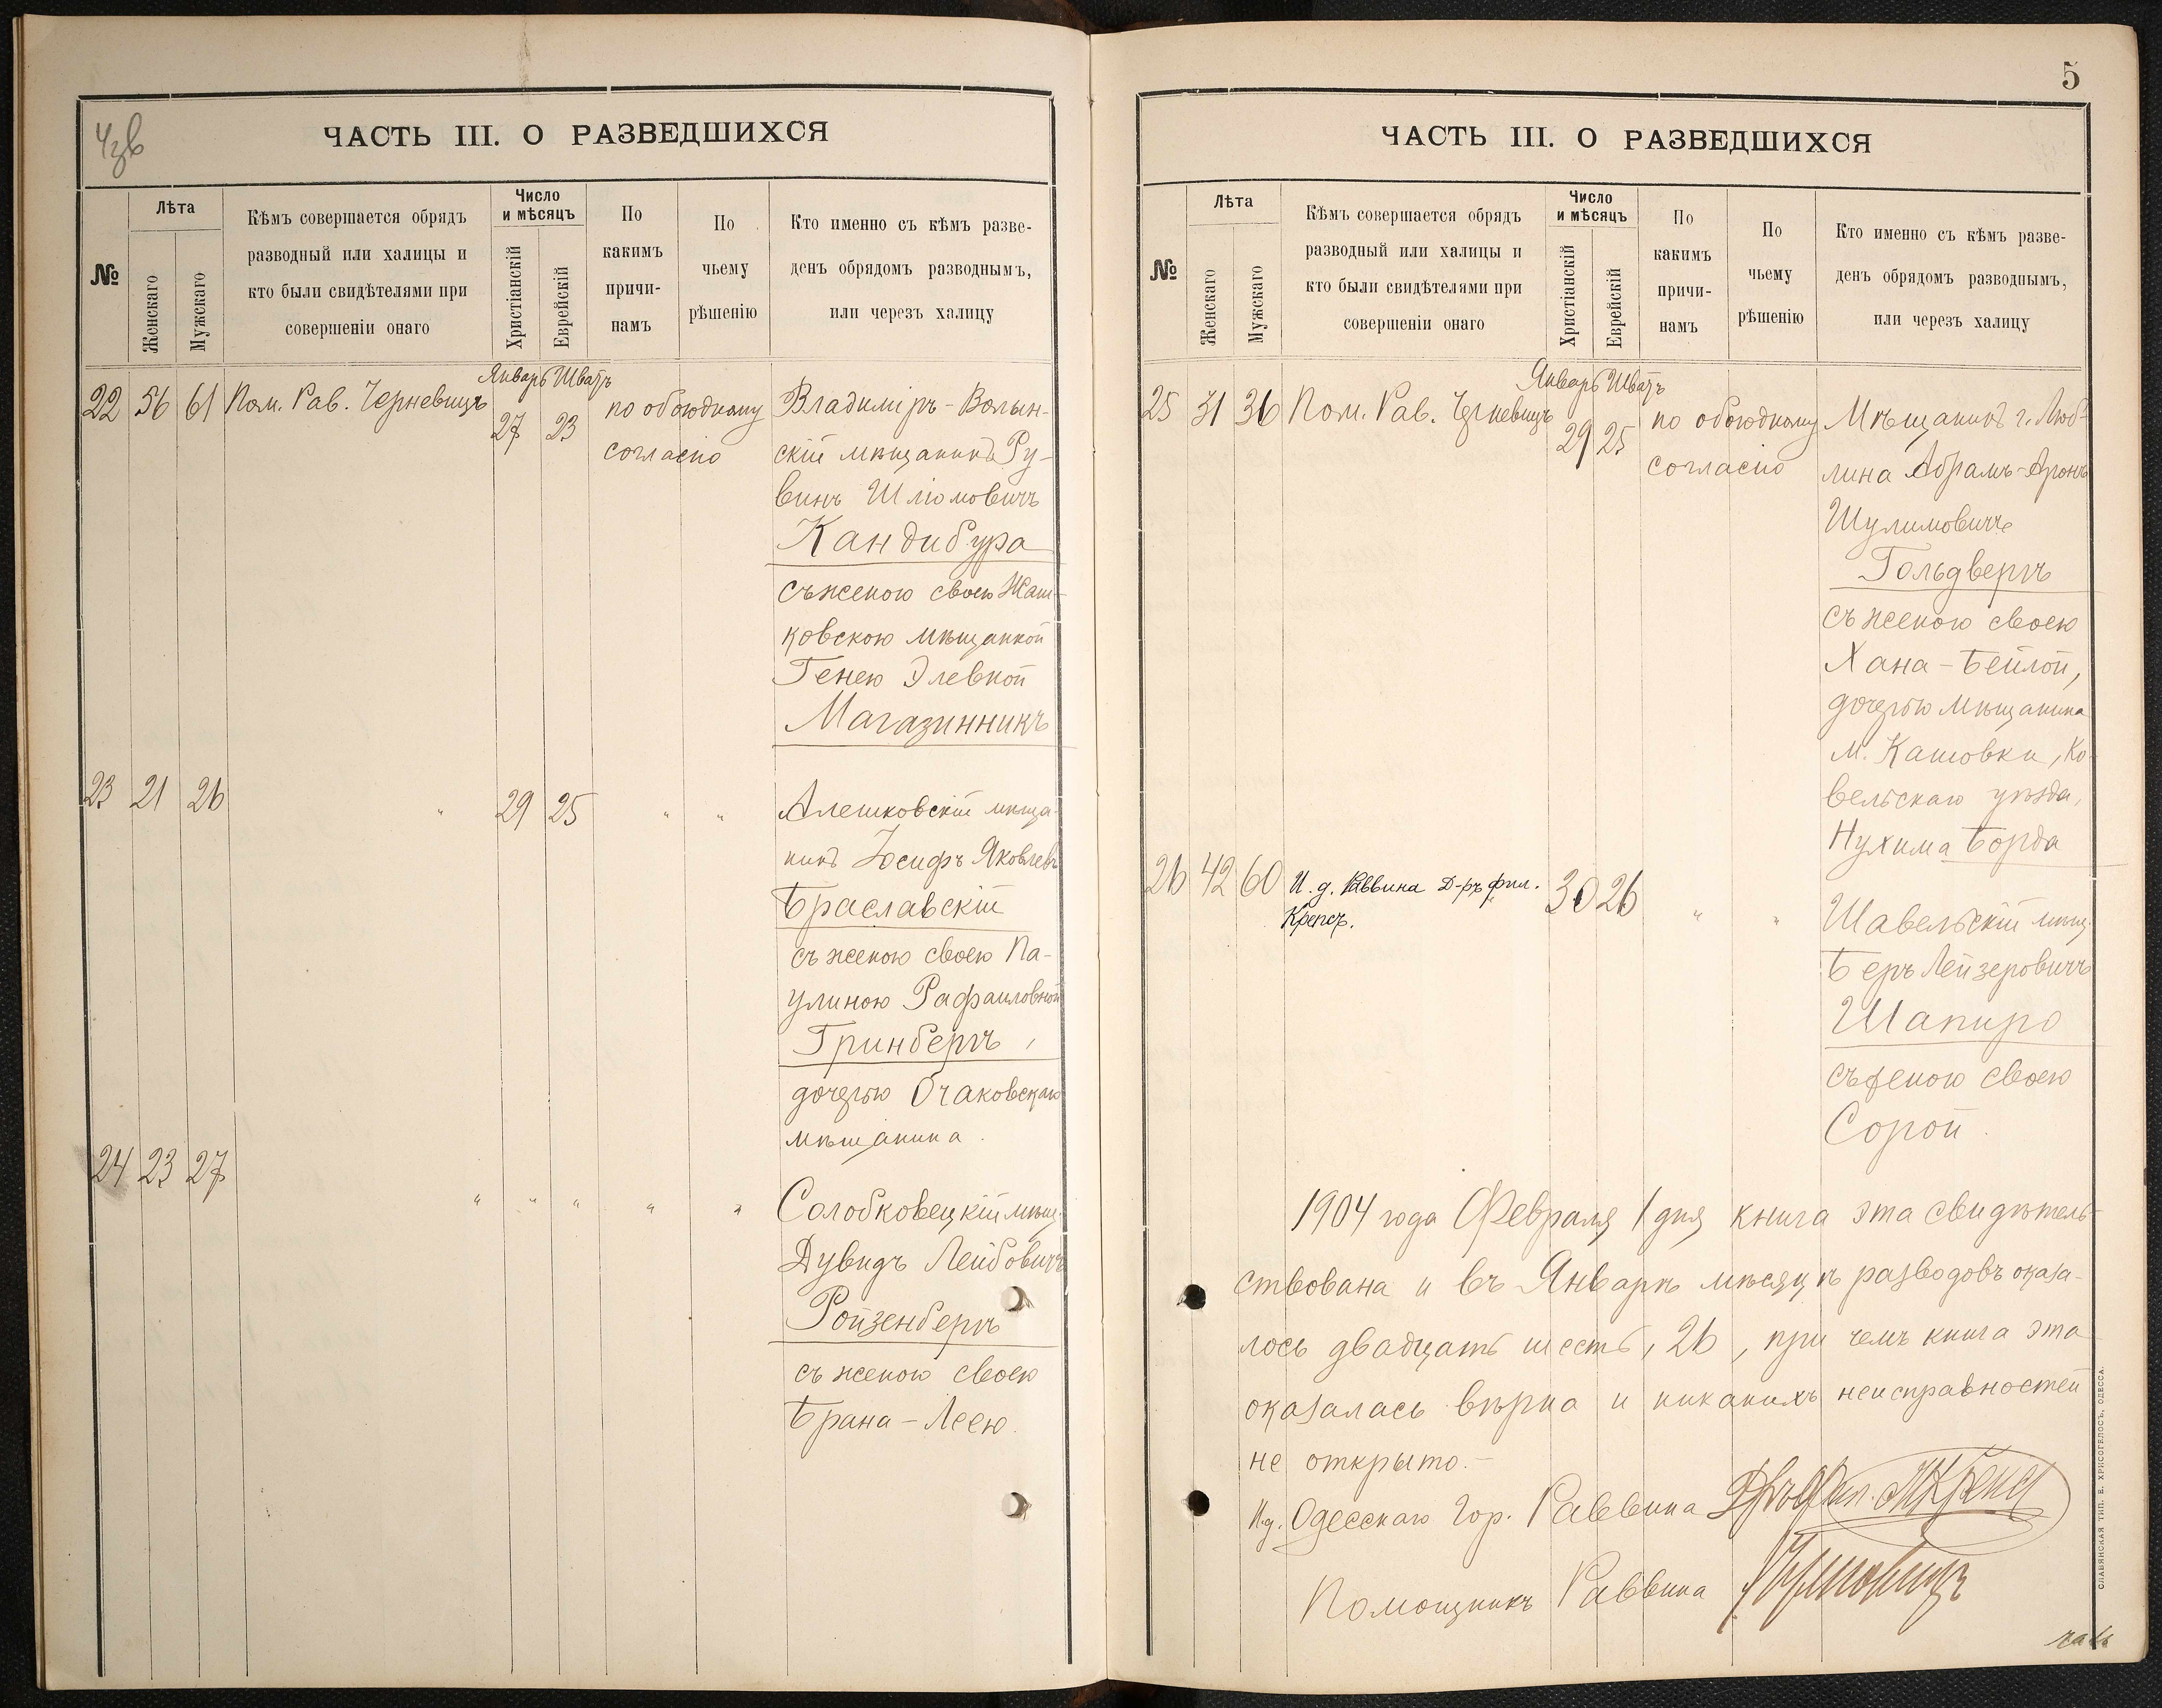 ЧАСТЬ III. О РАЗВЕДШИХСЯ
№
Лѣта
Женскаго
Мужскаго
Кѣмъ совершается обрядъ
разводный или халицы и
кто были свидѣтелями при
совершеніи онаго
Число
и мѣсяцъ
Христіанскій
Еврейскій
По
какимъ
причи-
намъ
По
чьему
рѣшенію
Кто именно съ кѣмъ разве-
денъ обрядомъ разводнымъ,
или черезъ халицу
Январь Шватъ
22 56 61 Пом. Рав. Черневицъ 27 23 по обоюдному Владиміръ-Волын-
согласію скій мѣщанинъ Ру-
винъ Шліомовичъ
Кандибура
съ женою своею Жаш-
ковскою мѣщанкой
Генею Элевной
Магазинникъ
23 21 26 " 29 25 " " Алешковскій мѣща-
нинъ Іосифъ Яковлевъ
Браславскій
съ женою своею Па-
улиною Рафаиловной
Гринбергъ,
дочерью Очаковскаго
мѣщанина.
24 23 27 " " " " " Солобковецкій мѣщ.
Дувидъ Лейбовичъ
Ройзенбергъ
съ женою своею
Брана-Леею.
5
ЧАСТЬ III. О РАЗВЕДШИХСЯ
№
Лѣта
Женскаго
Мужскаго
Кѣмъ совершается обрядъ
разводный или халицы и
кто были свидѣтелями при
совершеніи онаго
Число
и мѣсяцъ
Христіанскій
Еврейскій
По
какимъ
причи-
намъ
По
чьему
рѣшенію
Кто именно съ кѣмъ разве-
денъ обрядомъ разводнымъ,
или черезъ халицу
Январь Шватъ
25 31 36 Пом. Рав. Черневицъ 29 25 по обоюдному Мѣщанинъ г. Люб-
согласію лина Абрамъ-Аронъ
Шулимовичъ
Гольдвергъ
съ женою своею
Хана-Бейлой,
дочерью мѣщанина
м. Кашовки, Ко-
вельскаго уѣзда,
Нухима Борда
26 42 60 И. д. Раввина Д-ръ фил. 30 26 " " Шавельскій мѣщ.
Крепсъ. Беръ Лейзеровичъ
Шапиро
съ женою своею
Сорой.
1904 года Февраля 1 дня книга эта свидѣтель-
ствована и въ Январѣ мѣсяцѣ разводовъ оказа-
лось двадцать шесть, 26, при чемъ книга эта
оказалась вѣрна и никакихъ неисправностей
не открыто.-
И.д. Одесскаго Гор. Раввина Д-ръ Фил. Крепсъ
Помощникъ Раввина Черневицъ
СЛАВЯНСКАЯ ТИП. Е. ХРИСОГЕЛОСЪ, ОДЕССА.